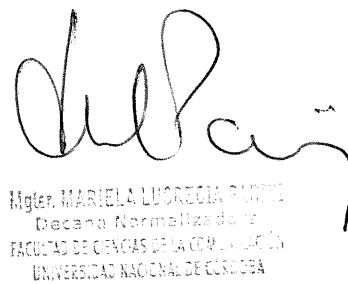 Mgter. MARIELA LUCRECIA
Decana Normalizadora
FACULTAD DE CIENCIAS DE LA COMUNICACIÓN
UNIVERSIDAD NACIONAL DE CÓRDOBA